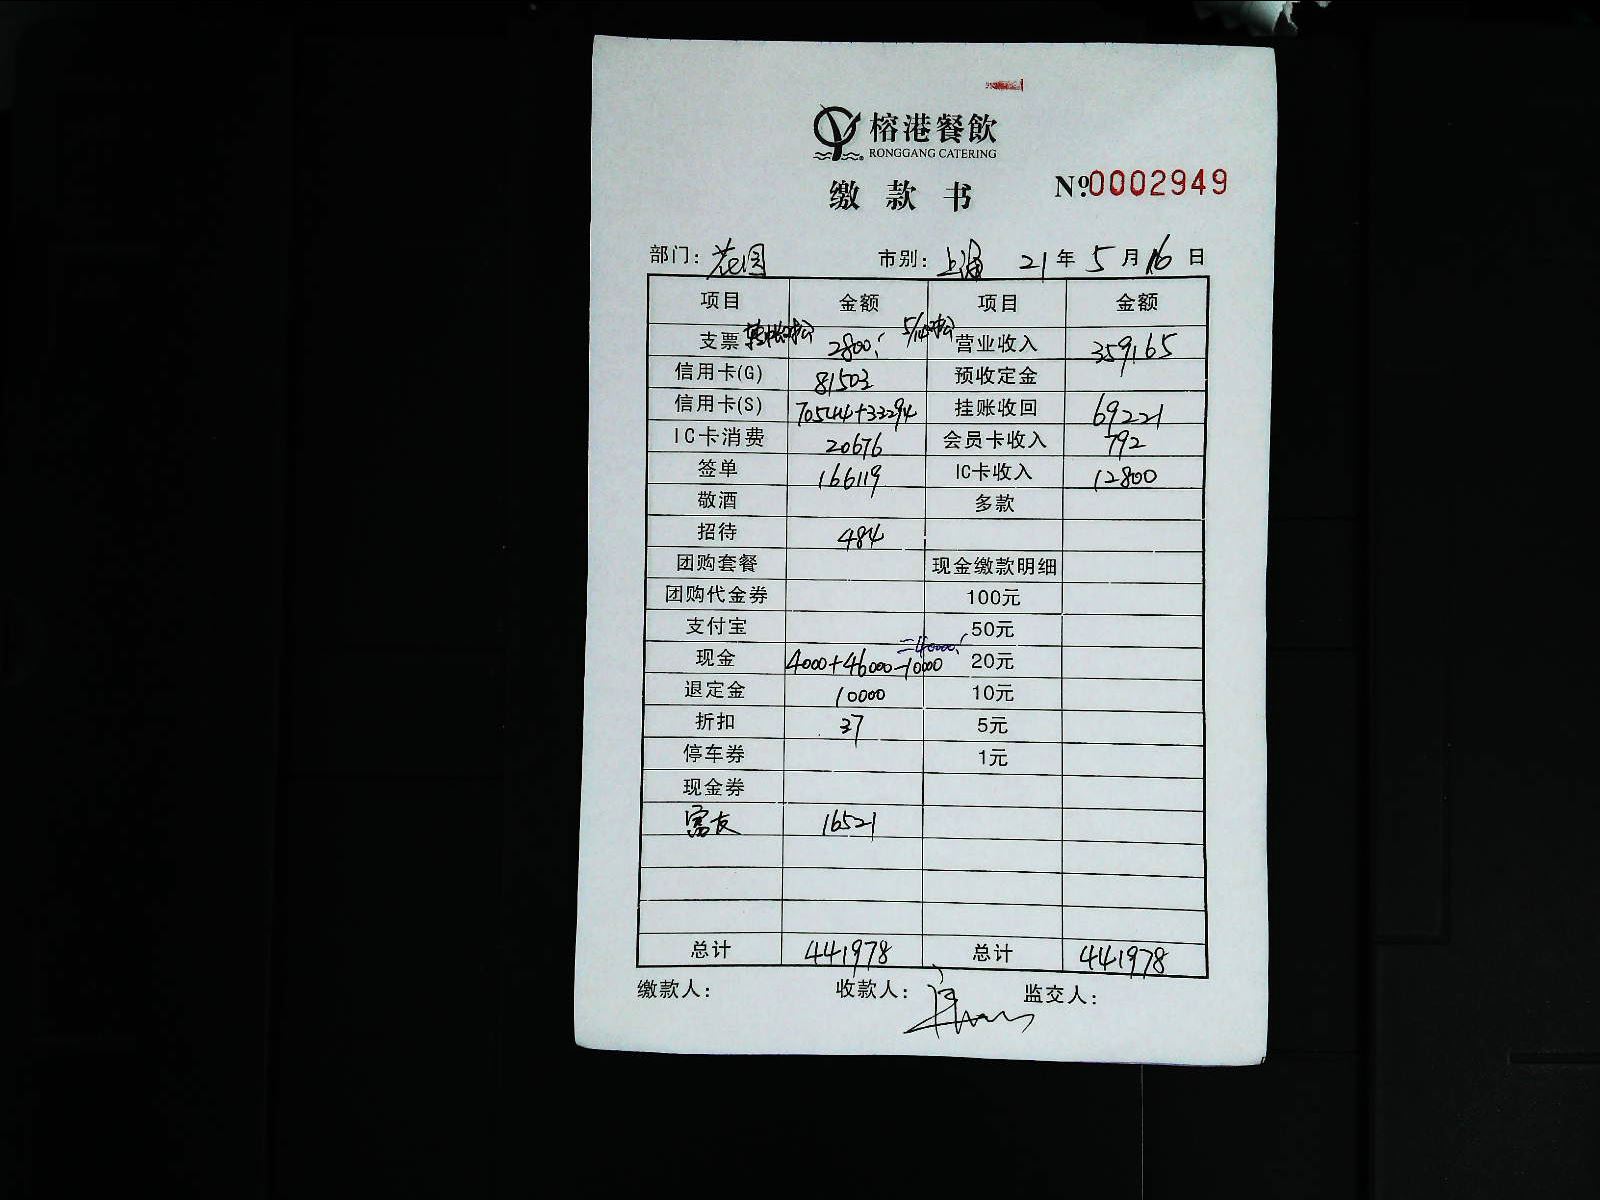 榕港餐飲
RONGGANG CATERING
缴款书 №0002949
部门: 花园 市别: 上海 21年5月16日
项目 金额 项目 金额
支票 2800 营业收入 359165
信用卡(G) 81503 预收定金
信用卡(S) 70544+33294 挂账收回 69221
IC卡消费 20676 会员卡收入 792
签单 166119 IC卡收入 12800
敬酒 多款
招待 484
团购套餐 现金缴款明细
团购代金券 100元
支付宝 50元
=40000
现金 4000+46000-10000 20元
退定金 10000 10元
折扣 37 5元
停车券 1元
现金券
富友 16521
总计 441978 总计 441978
缴款人: 收款人: 监交人: